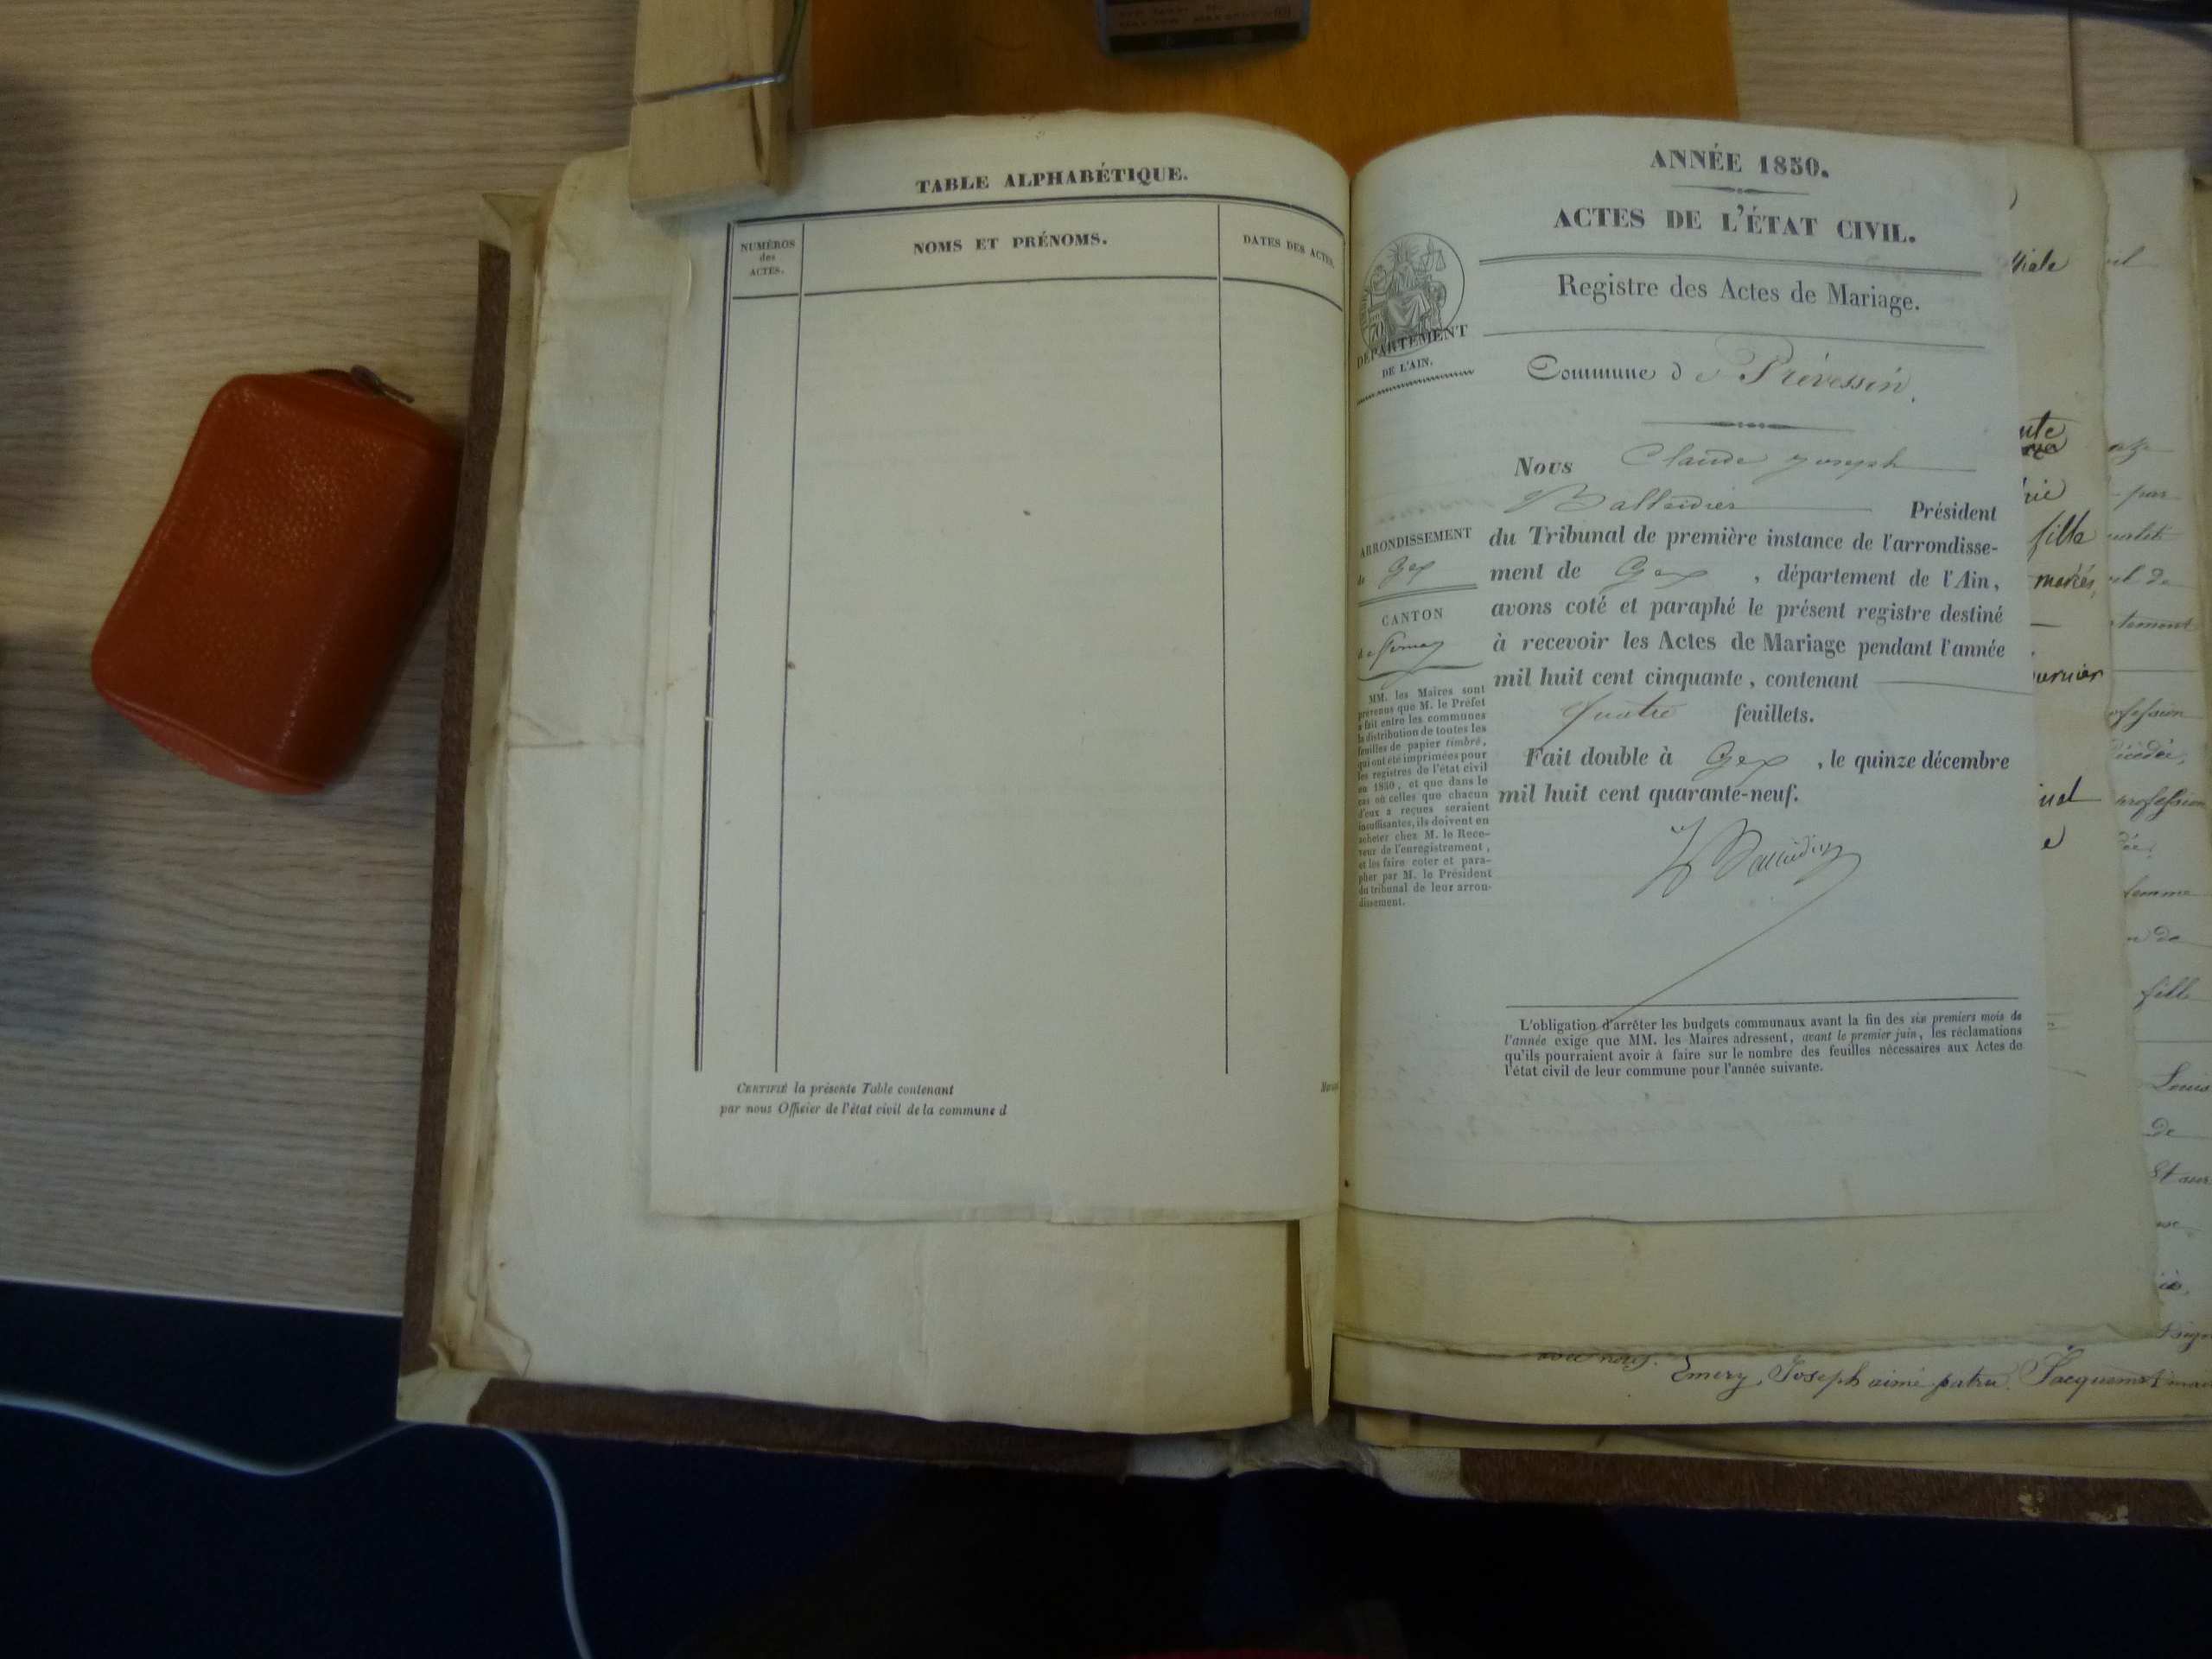 TABLE ALPHABÉTIQUE.
NUMÉROS
des
ACTES.
NOMS ET PRÉNOMS.
DATES DES ACTES.
CERTIFIÉ la présente Table contenant
par nous Officier de l'état civil de la commune d
ANNÉE 1850.
ACTES DE L'ÉTAT CIVIL.
Registre des Actes de Mariage.
DÉPARTEMENT
DE L'AIN.
Commune de Prévessin.
Nous Claude Joseph
Balleidier Président
du Tribunal de première instance de l'arrondisse-
ment de Gex, département de l'Ain,
avons coté et paraphé le présent registre destiné
à recevoir les Actes de Mariage pendant l'année
mil huit cent cinquante, contenant
quatre feuillets.
Fait double à Gex, le quinze décembre
mil huit cent quarante-neuf.
Balleidier
ARRONDISSEMENT
de Gex
CANTON
de Ferney
MM. les Maires sont
prévenus que M. le Préfet
a fait entre les communes
la distribution de toutes les
feuilles de papier timbré,
qui ont été imprimées pour
les registres de l'état civil
en 1850, et que dans le
cas où celles que chacun
d'eux a reçues seraient
insuffisantes, ils doivent en
acheter chez M. le Rece-
veur de l'enregistrement,
et les faire coter et para-
pher par M. le Président
du tribunal de leur arron-
dissement.
L'obligation d'arrêter les budgets communaux avant la fin des six premiers mois de
l'année exige que MM. les Maires adressent, avant le premier juin, les réclamations
qu'ils pourraient avoir à faire sur le nombre des feuilles nécessaires aux Actes de
l'état civil de leur commune pour l'année suivante.
fille
mariés,
femme
fille
Louis
de
avec nous. Emery, Joseph aimé patru. Jacquemet